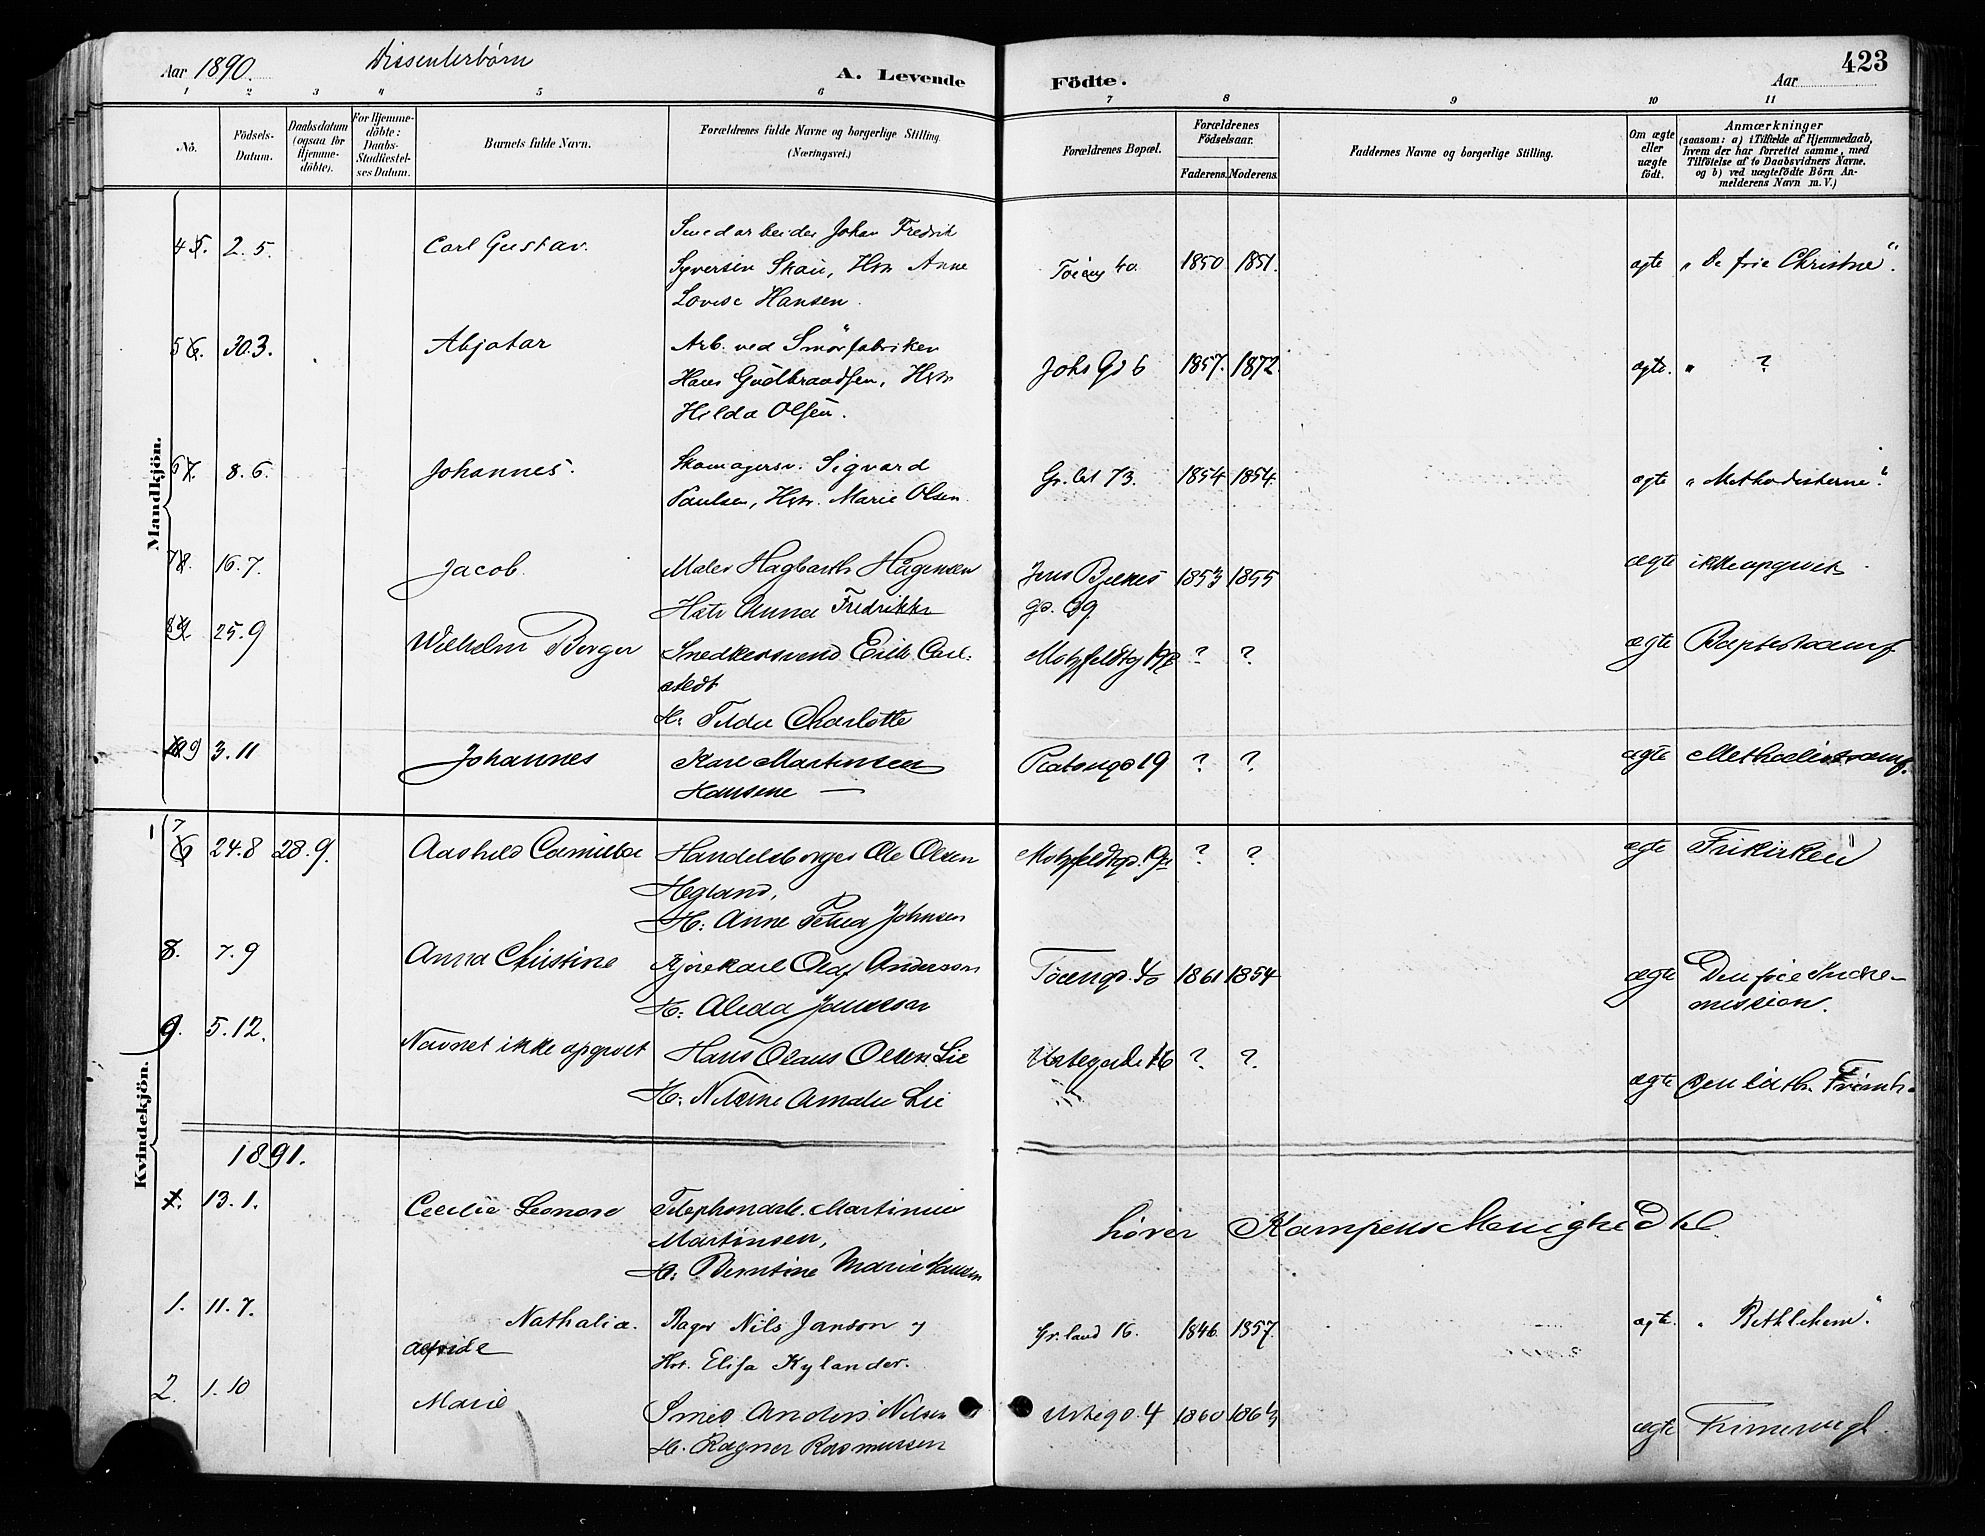 Aar 1890. Dissenterbørn A. Levende Födte. Aar 423
1 2 3 4 5 6 7 8 9 10 11
No. Födsels-Datum. Daabsdatum (ogsaa for Hjemmedöbte). For Hjemmedöbte: Daabs-Stadfæstelses Datum. Barnets fulde Navn. Forældrenes fulde Navne og borgerlige Stilling. (Næringsvei.) Forældrenes Bopæl. Forældrenes Födselsaar. Faderens. Moderens. Faddernes Navne og borgerlige Stilling. Om ægte eller uægte födt. Anmærkninger (saasom: a) i Tilfælde af Hjemmedaab, hvem der har forrettet samme, med Tilföielse af to Daabsvidners Navne, og b) ved uægtefödte Börn Anmelderens Navn m. V.)
Mandkjön.
4 5. 2.5. Carl Gustav. Johan Fredrik
Syversen Skau, Hstr Anne
Lovise Hansen.
Töieng 40. 1850 1851. ægte "De frie Christne".
5 6. 30.3. Abjatar Arb. ved Smörfabriken
Hans Gudbrandsen, Hstr
Hilda Olsen.
Johs Gd 6 1857. 1872. ægte. " ?
6 7. 8.6. Johannes. Skomagersv. Sigvard
Paulsen, Hstr. Marie Olsen
Gr.let 73. 1854 1854. ægte "Methodisterne".
7 8. 16.7. Jacob. Maler Hagbarth Hagensen
Hstr Anna Fredrikke
Jens Bjelkes
gd. 69. 1853 1855 ægte ikke opgivet
8 9. 25.9 Wilhelm Borger Snedkersvend Erik Carl-
stedt
H: Tilda Charlotte
Motzfeldtg ? ? ægte Baptistsamf
10 9 3.11 Johannes Karl Martinsen
Hansine —
Platougd 19 ? ? ægte Methodistsamf.
Kvindekjön.
7 6 24.8 28.9. Aashild Camilla Handelsborger Ole Olsen
Hegland,
H: Anne Petrea Johnsen
Motzfeldtgd. 19 ? ? ægte Frikirken
8. 7.9 Anna Christine Kjörekarl Olaf Andersson
H: Aleda Jansson
Töiengd. 40 1861 1854 ægte Den frie Indre-
mission.
9. 5.12. Navnet ikke opgivet Hans Olaus Olsen Lie
H: Amalie Lie
Urtegade 16 ? ? ægte Den luth. Frimh.
1891.
1. 13.1. Cecilie Leonore Martinius
Martinsen,
H: Berntine Marie Hansen
hörer Kampens Menighed til.
1. 11.7. Nathalia. Bager Nils Janson og
Alfride Hst. Elisa Kylander.
Gr.land 16. 1846. 1857. ægte. "Bethlehem".
2. 1.10 Marie Smed Anders Nilsen
H. Ragna Rasmussen
Urtegd. 4 1860 1863 ægte Frimenigh.